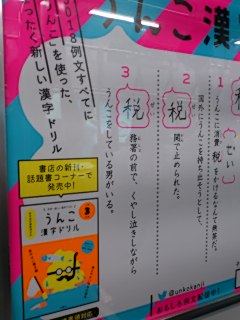 うんこ漢
018例文すべてに
んこを使った、
ったく新しい漢字ドリル
1
うんこに消費税をかけるなんて無茶だ。
ぜい
2
国外にうんこを持ち出そうとして、
税関で止められた。
3
税務署の前で、くやし泣きしながら
うんこをしている男がいる。
書店の新刊・
話題書コーナーで
発売中!
うんこ
漢字ドリル
3
@unkokanji